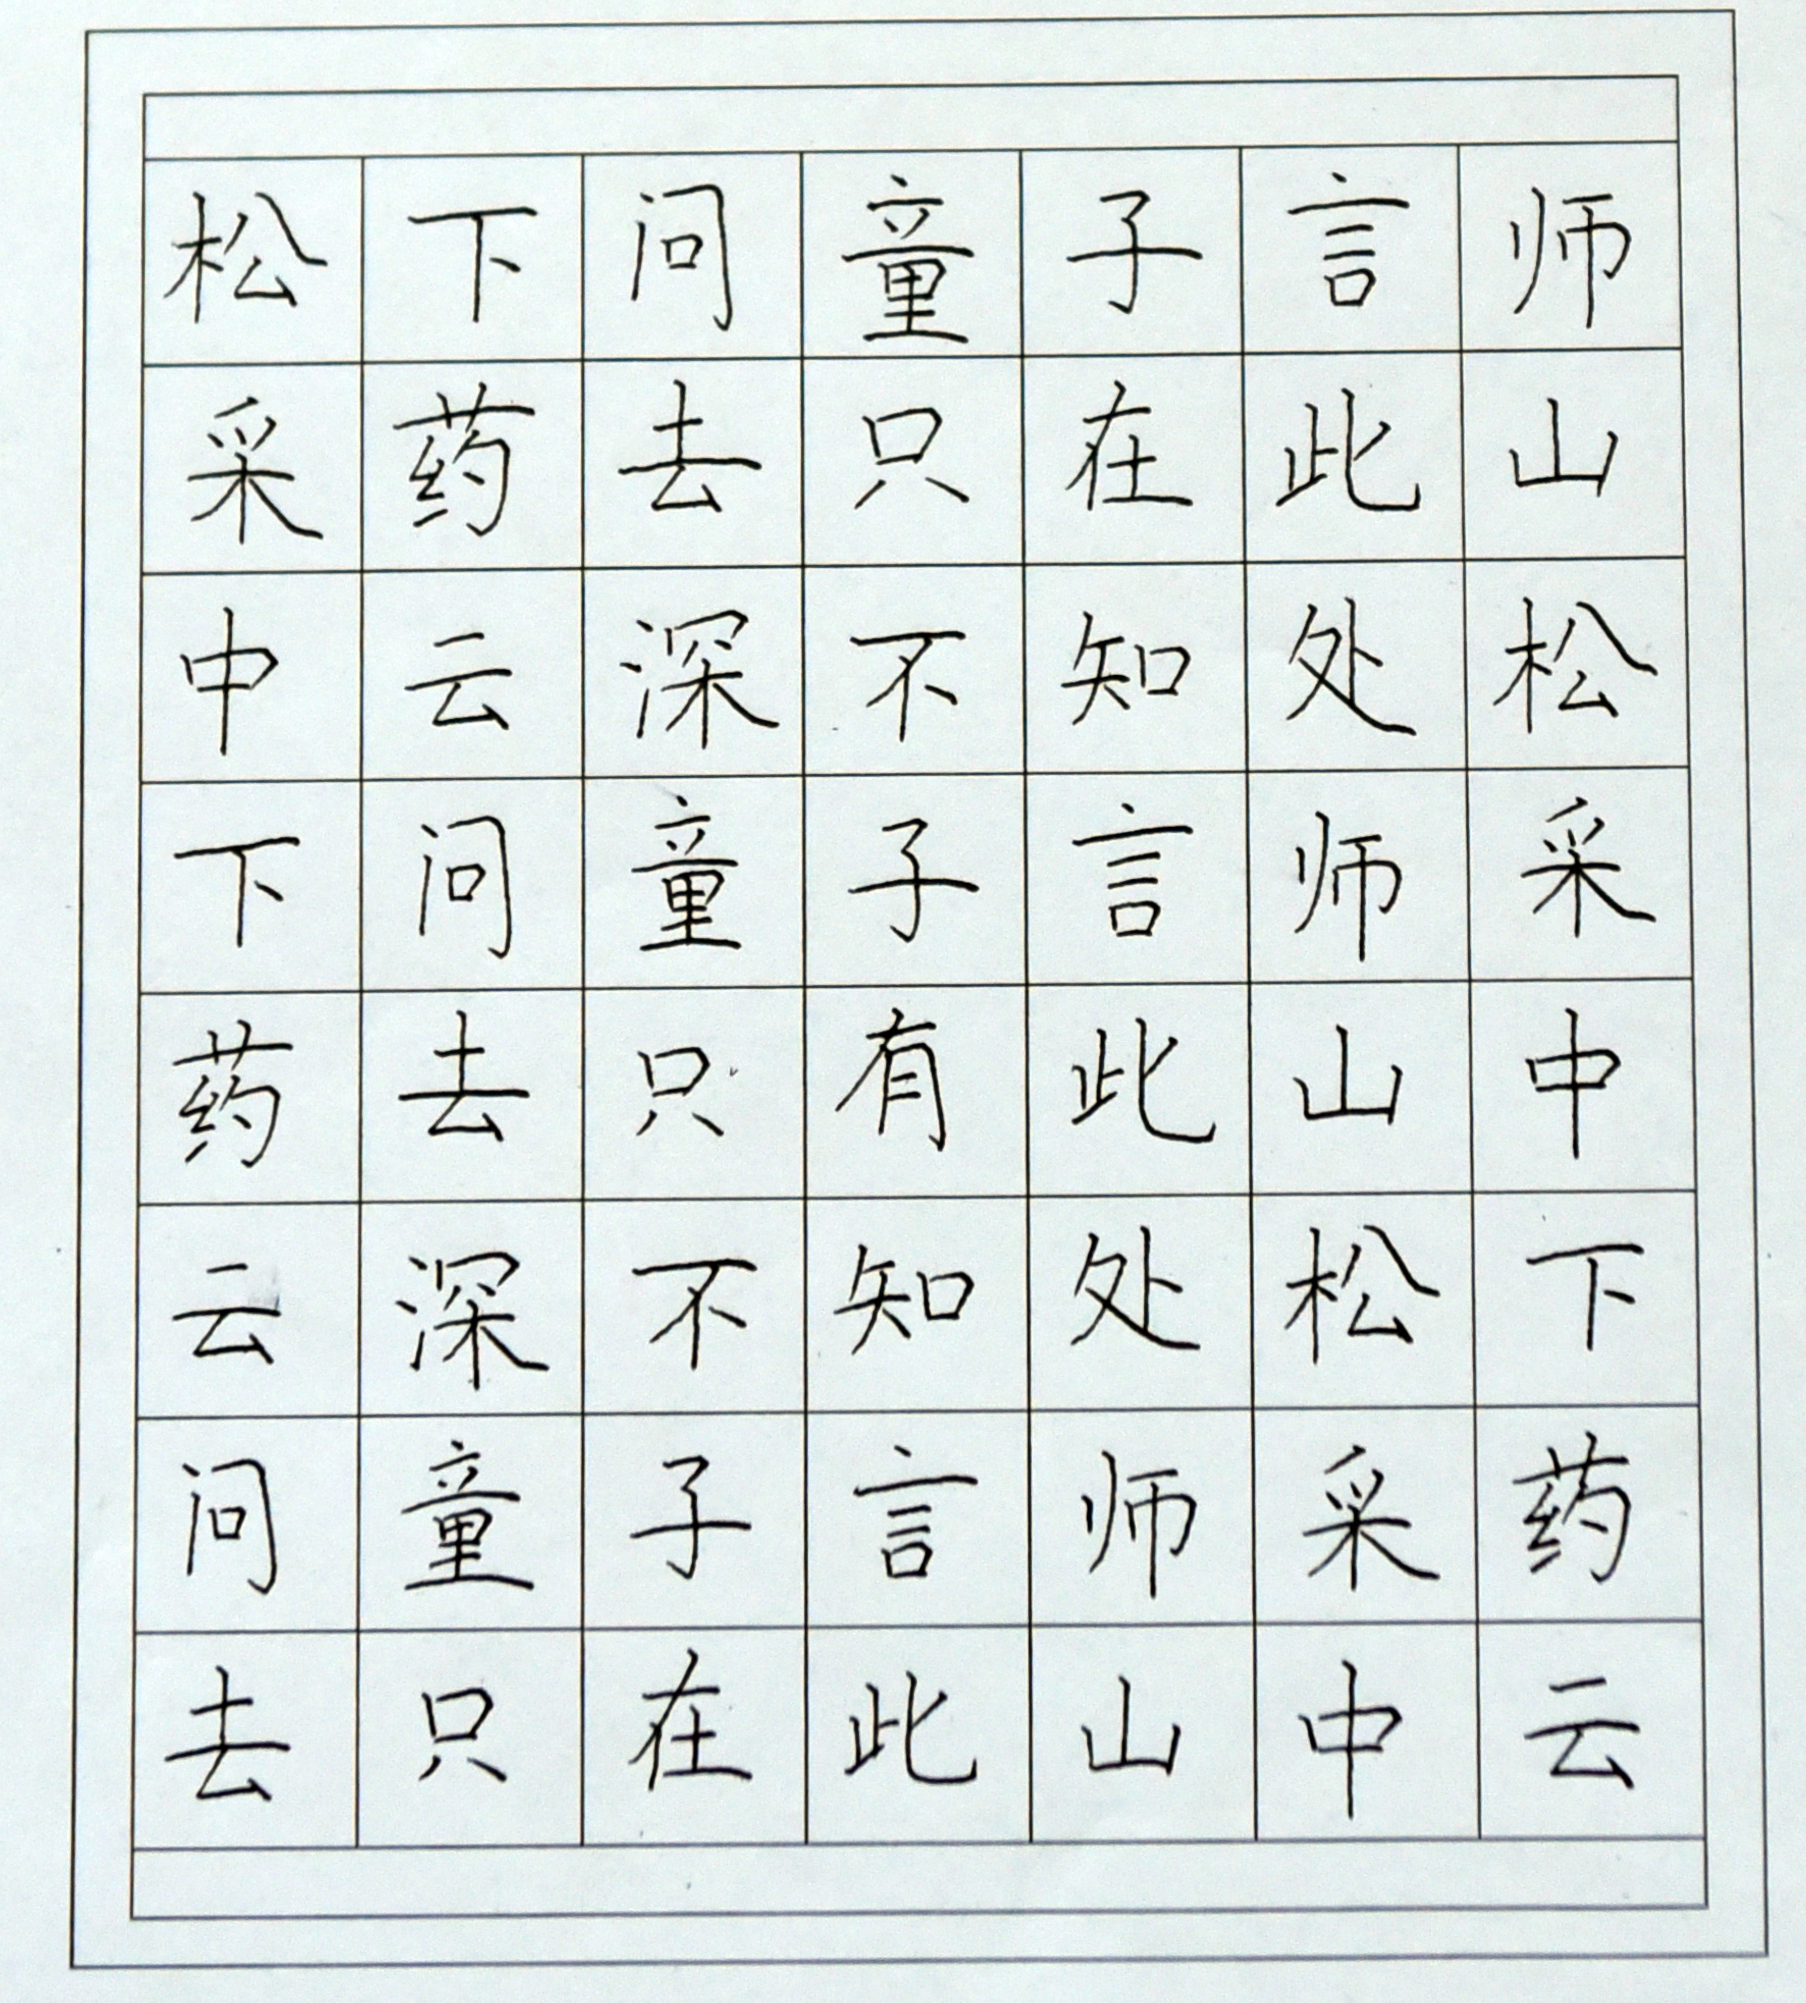 松下问童子言师
采药去只在此山
中云深不知处松
下问童子言师采
药去只有此山中
云深不知处松下
问童子言师采药
去只在此山中云